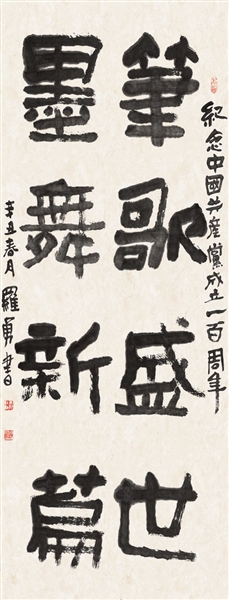 紀念中國共産黨成立一百周年
筆歌盛世
墨舞新篇
辛丑春月 羅勇書